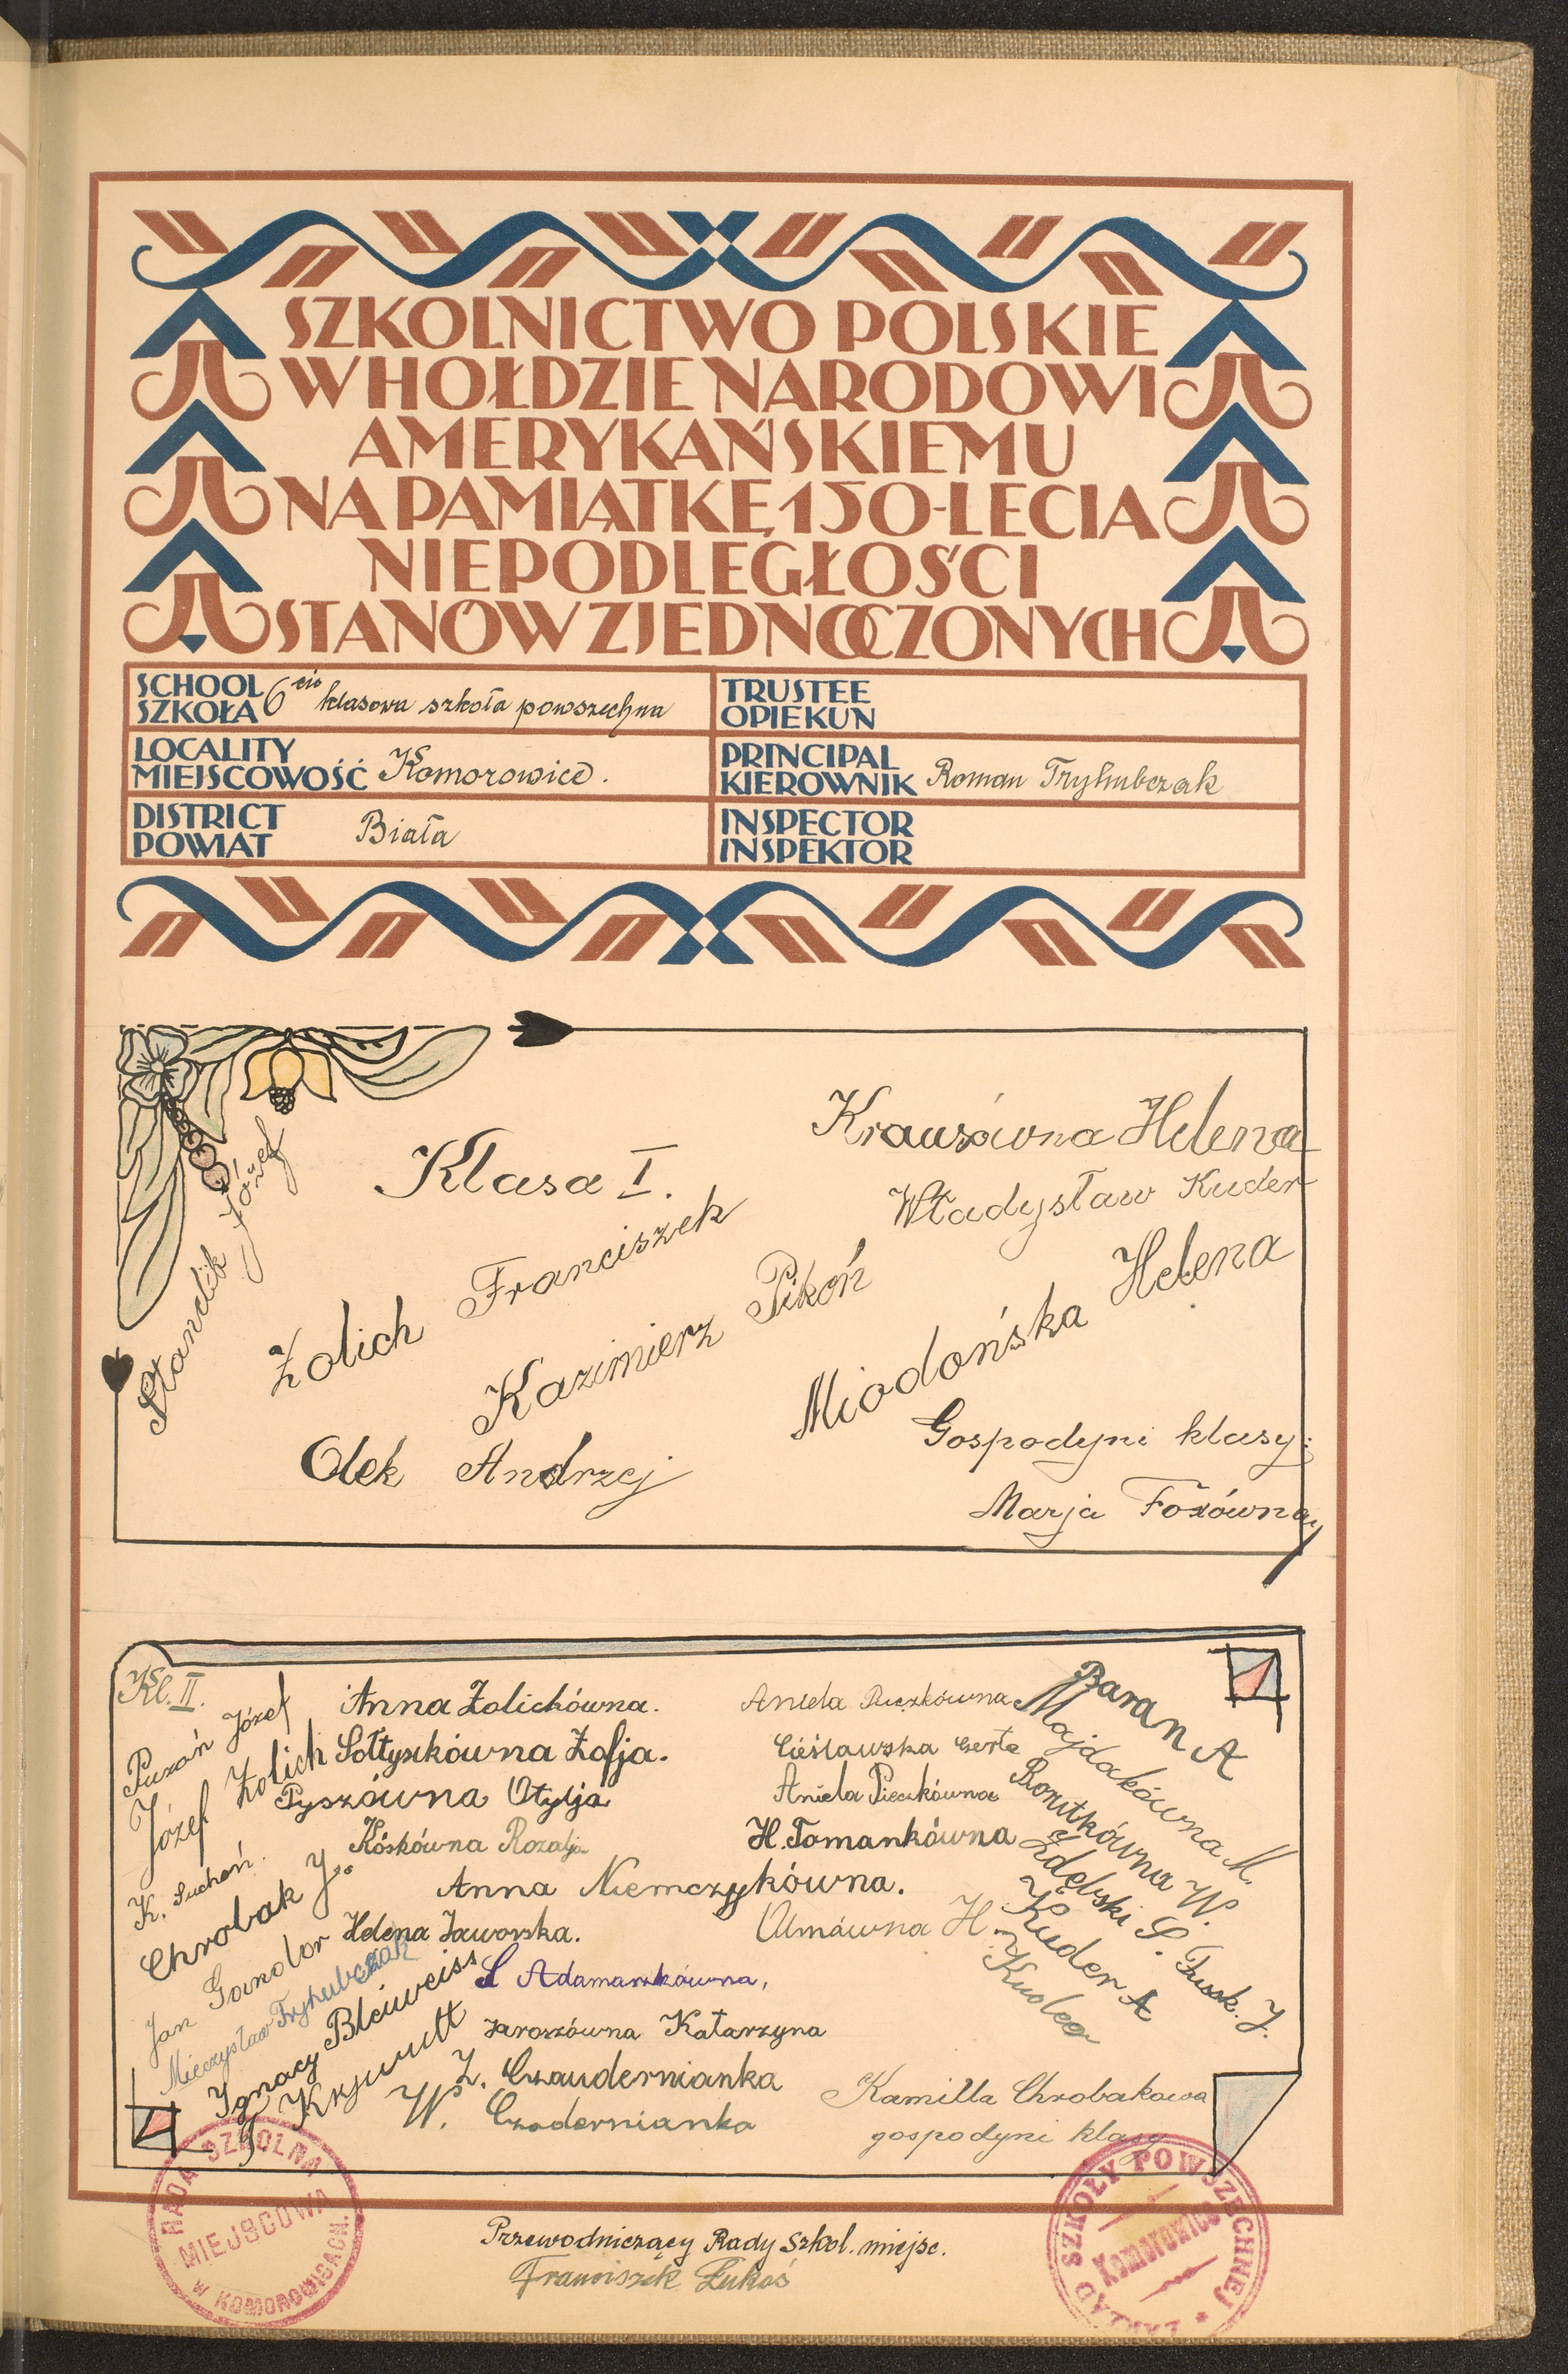 SZKOLNICTWO POLSKIE
W HOŁDZIE NARODOWI
AMERYKAŃSKIEMU
NA PAMIĄTKĘ 150-LECIA
NIEPODLEGŁOŚCI
STANÓW ZJEDNOCZONYCH
SCHOOL
SZKOŁA 6cio klasowa szkoła powszechna
TRUSTEE
OPIEKUN
LOCALITY
MIEJSCOWOŚĆ Komorowice.
PRINCIPAL
KIEROWNIK Roman Tryhubczak
DISTRICT
POWIAT Biała
INSPECTOR
INSPEKTOR
Klasa I.
Krausówna Helena
Władysław Kuder
Standik Józef
Żolich Franciszek
Kazimierz Pikoń
Miodońska Helena
Olek Andrzej
Gospodyni klasy:
Marja Foxówna
Kl. II.
Puzoń Józef
Józef Żolich
K. Suchoń.
Chrobak J.
Jan Gandor
Mieczysław Tryhubczak
Ignacy Bleiweiss
T Krywult
Anna Żolichówna.
Sołtysikówna Zofja.
Pyszówna Otylja
Kóskówna Rozalja
Anna Niemczykówna.
Helena Jaworska.
S Adamaszkówna,
Jaroszówna Katarzyna
Z. Czaudernianka
W. Czodernianka
Aniela Puczkówna
Cieślawska Gerta
Aniela Pieczkówna
H. Tomankówna
Ulmówna H.
Baran A
Majdakówna M.
Ronitkówna W.
Zdębski S.
Fusek. J.
Kuder A
Kamilla Chrobakowa
gospodyni klasy
RADA SZKOLNA
MIEJSCOWA
W KOMOROWICACH.
ZAKŁAD SZKOŁY POWSZECHNEJ
Komorowice
Przewodniczący Rady Szkol. miejsc.
Franciszek Łukoś